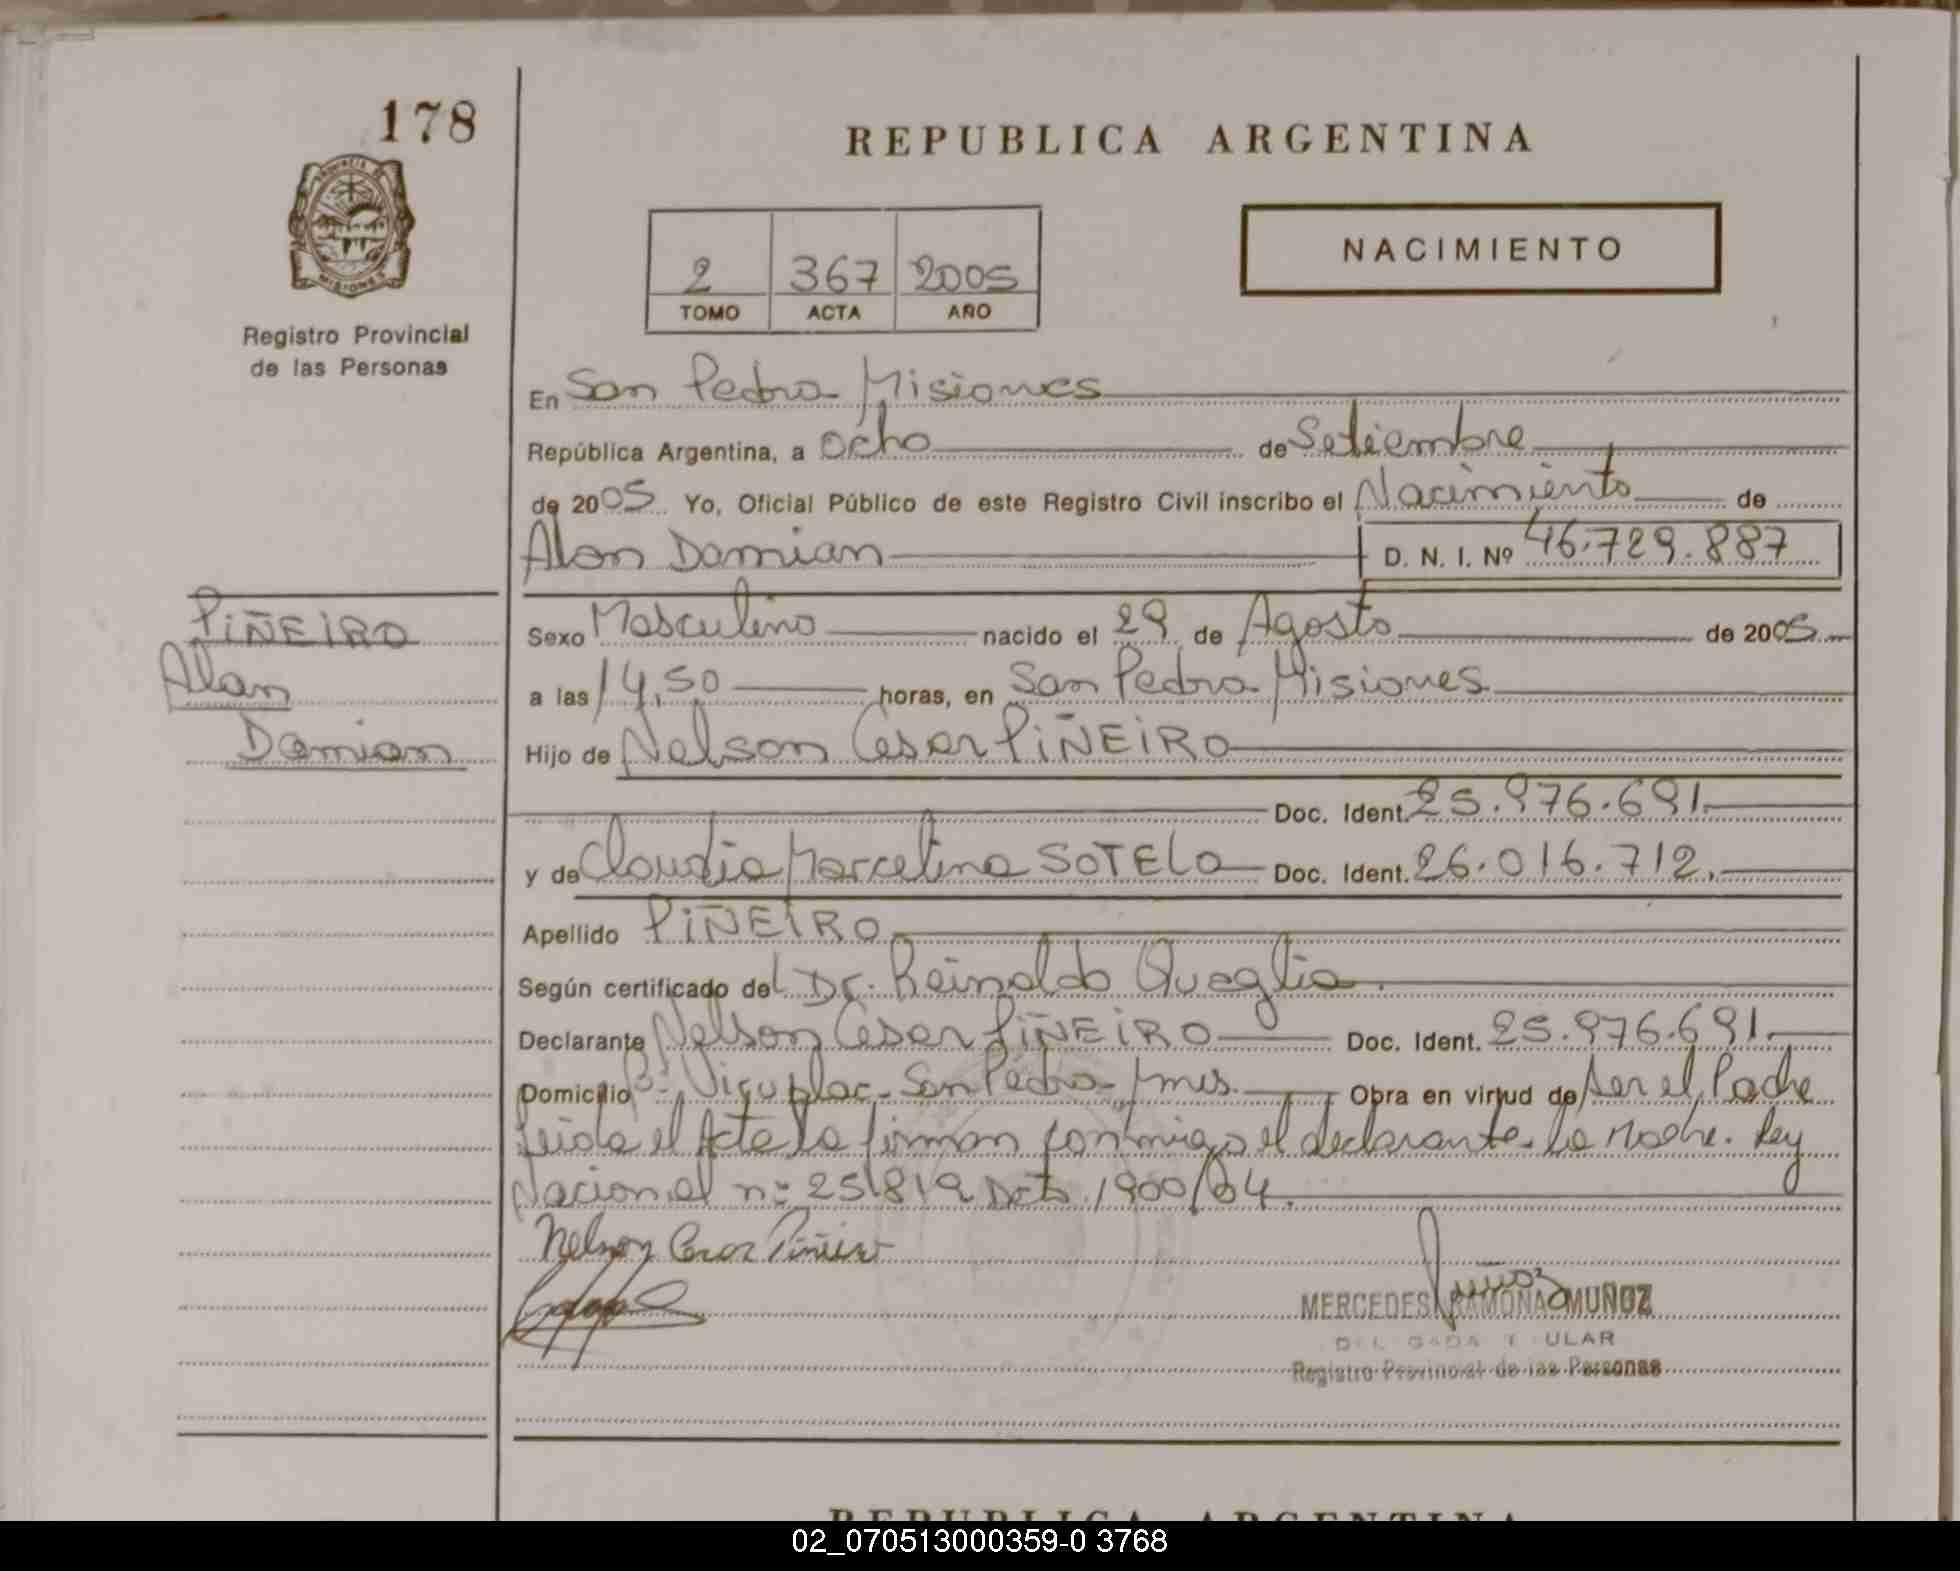 178
REPUBLICA ARGENTINA
PROVINCIA DE
MISIONES
Registro Provincial
de las Personas
NACIMIENTO
2 367 2005
TOMO ACTA AÑO
En San Pedro Misiones
República Argentina, a ocho de Setiembre
de 2005 Yo, Oficial Público de este Registro Civil inscribo el Nacimiento de
Alan Damian D. N. I. Nº 46.729.887
PIÑEIRO
Alan
Damian
Sexo Masculino nacido el 29 de Agosto de 2005
a las 14,50 horas, en San Pedro Misiones
Hijo de Nelson Cesar PIÑEIRO
Doc. Ident. 25.976.691.
y de Claudia Marcelina SOTELO Doc. Ident. 26.016.712.
Apellido PIÑEIRO
Según certificado del Dr. Reinaldo Quaglia.
Declarante Nelson Cesar PIÑEIRO Doc. Ident. 25.976.691.
Domicilio Bº San Pedro - Mnes. Obra en virtud de ser el Padre
Leida el Acta la firman conmigo el declarante. la Madre. Ley
Nacional nº 25.819 Dcto. 1900/04.
Nelson Cesar Piñeiro
Muñoz
MERCEDES RAMONA MUÑOZ
Registro Provincial de las Personas
REPUBLICA ARGENTINA
02_070513000359-0 3768